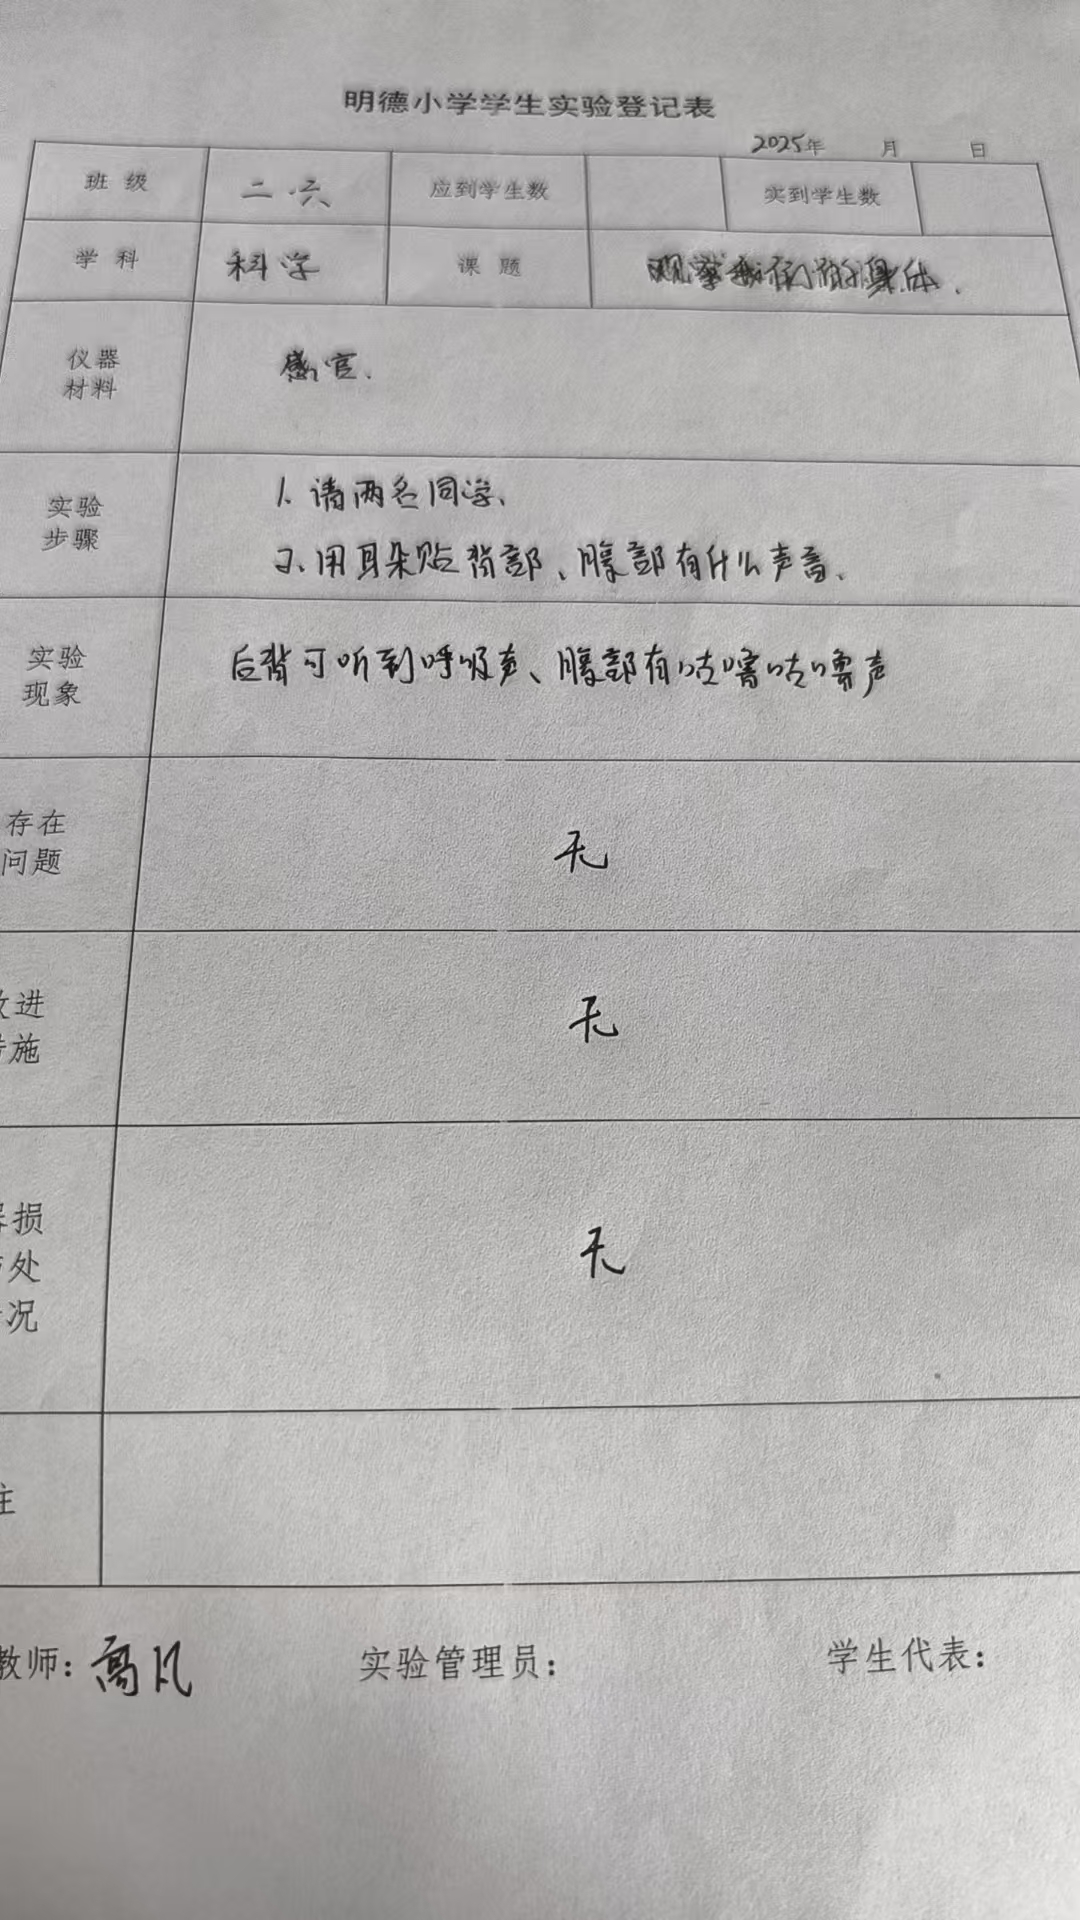 明德小学学生实验登记表
2025年 月 日
班 级 二.六 应到学生数 实到学生数
学 科 科学 课 题 观察我们的身体.
仪器
材料
感官.
实验
步骤
1. 请两名同学、
2. 用耳朵贴背部、腹部有什么声音、
实验
现象
后背可听到呼吸声、腹部有咕噜咕噜声
存在
问题
无
改进
措施
无
损
处
况
无
注
教师: 高凡 实验管理员: 学生代表: